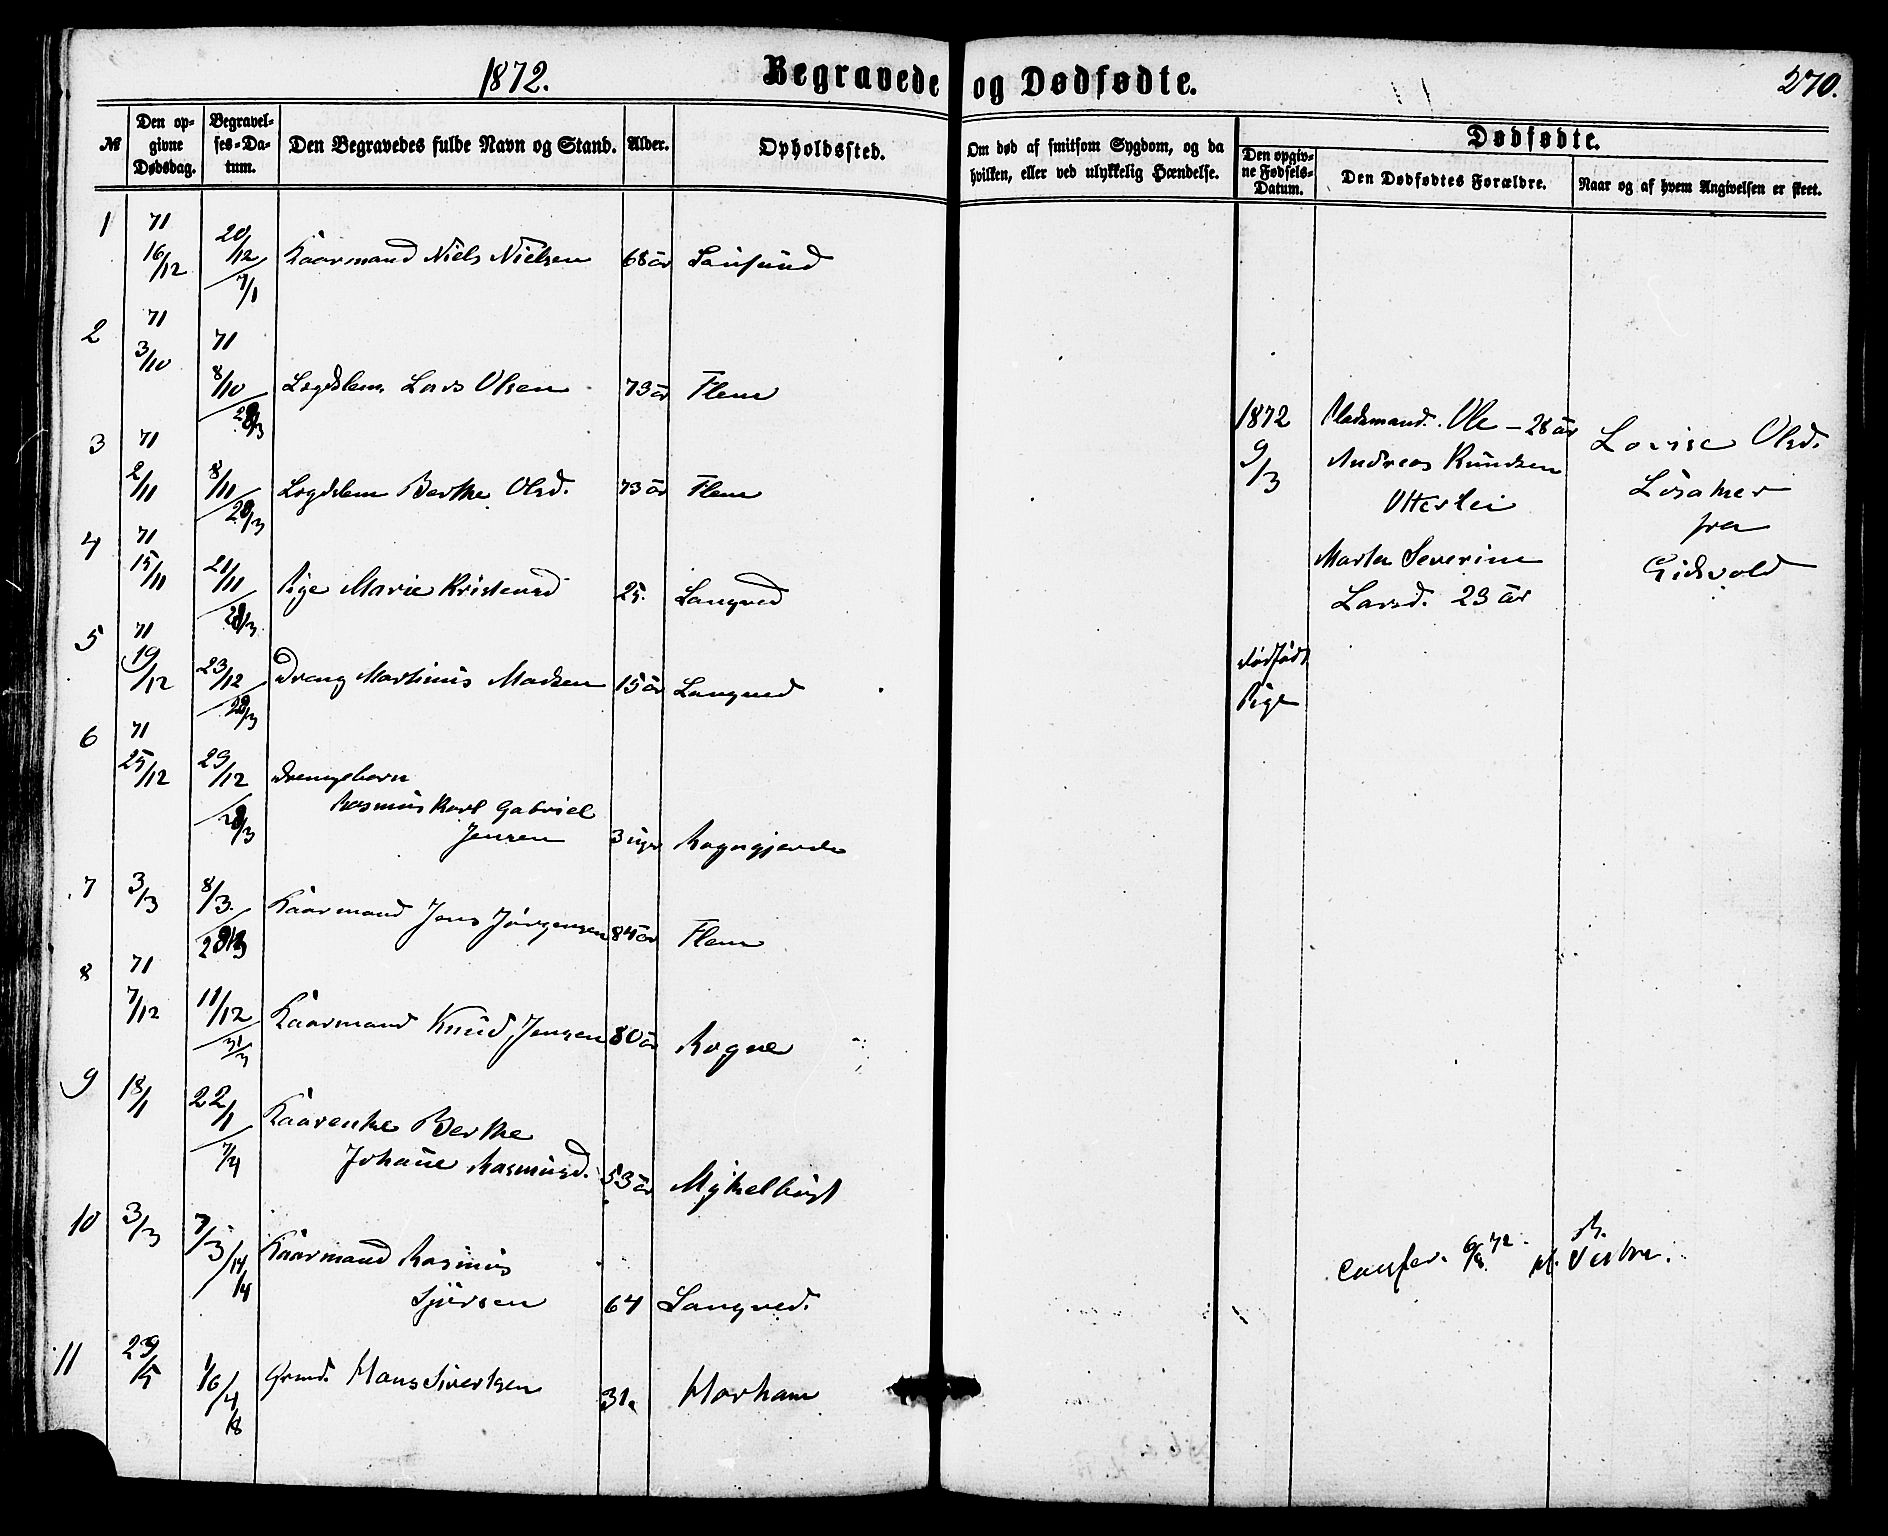 1872.
Begravede og Dødfødte.
270.
№
Den opgivne Dødsdag.
Begravelses-Datum.
Den Begravedes fulde Navn og Stand.
Alder.
Opholdssted.
Om død af smitsom Sygdom, og da hvilken, eller ved ulykkelig Hændelse.
Dødfødte.
Den opgivne Fødsels-Datum.
Den Dødfødtes Forældre.
Naar og af hvem Angivelsen er skeet.
1 71 16/12 20/12 7/1 Kaarmand Niels Nielsen 68 år
2 71 3/10 71 8/10 28/3 Lægdslem Lars Olsen 73 år Flem
3 71 2/11 8/11 28/3 Lægdslem Berthe Olsd. 73 år Flem
4 71 15/11 21/11 28/3 Pige Marie Kristensd 25. Longved
5 71 19/12 23/12 28/3 Dreng Martinus Madsen 15 år Longved
6 71 25/12 29/12 28/3 Drengebarn
Rasmus Karl Gabriel
Jensen 3 uger Rogngjerde
7 3/3 8/3. 28/3 Kaarmand Jens Jørgensen 84 år Flem
8 71 7/12 11/12 31/3 Kaarmand Knud Jensen 80 år Rogne
9 18/1 22/1 7/4 Kaarenke Berthe
Johane Rasmusd. 53 år Myhelbust
10 3/3 7/3 14/4 Kaarmand Rasmus
Sjursen 64 Longved.
11 29/5 1/6 4/8 Grmd. Hans Sivertsen 31. Harham
1872
9/3
Dødfødt
Pige
Pladsmand. Ole – 28 år
Andreas Knudsen
Otterlei
Marta Severine
Larsd. 23 år
Lovise Olsd.
Løsaker
fra
Gidsvold
Confer. 6/8 72. Vestre.